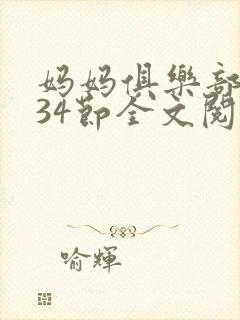 妈妈俱樂部
34節全文閱
喻輝